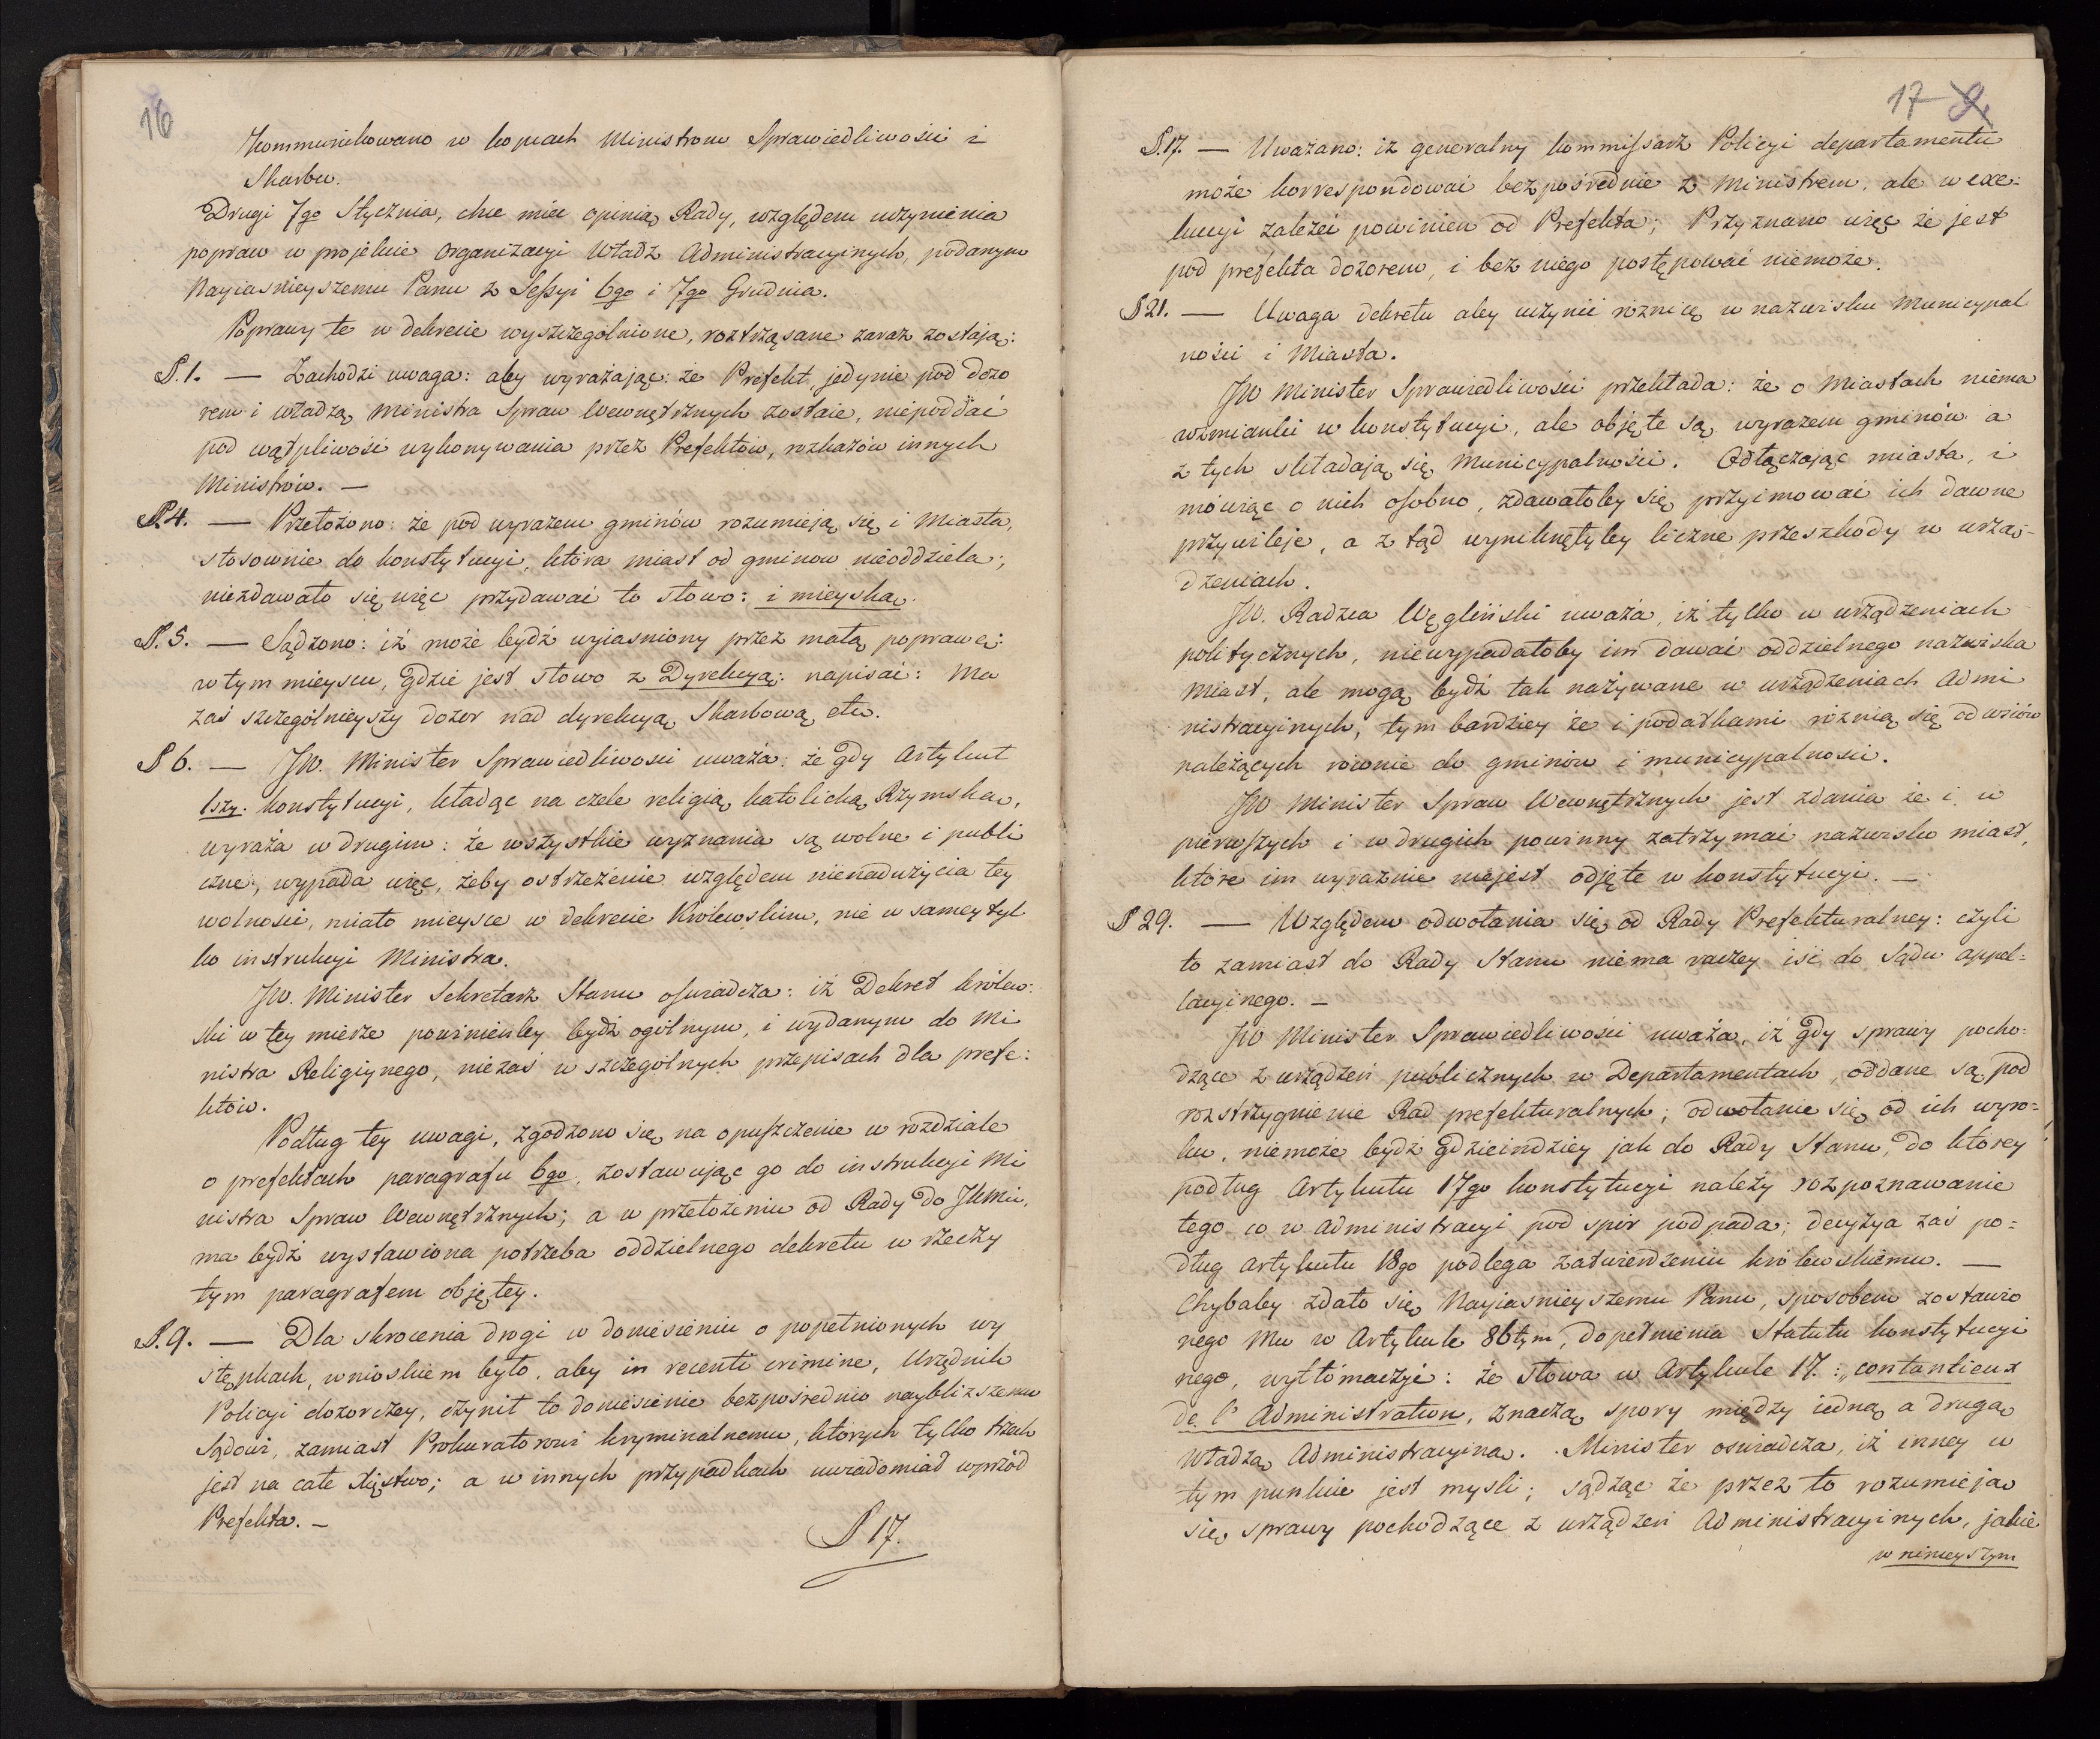 16
Kommunikowano w kopiach Ministrom Sprawiedliwości i
Skarbu.
Drugi 7go Stycznia, chce mieć opinią Rady, względem uczynienia
popraw w projekcie organizacyi Władz Administracyinych, podanym
Nayiaśnieyszemu Panu z Sessyi 6go i 7go Grudnia.
Poprawy te w dekrecie wyszczególnione, roztrząsane zaraz zostają:
§.1. — Zachodzi uwaga: aby wyrażając: że Prefekt, jedynie pod dozo
rem i władzą Ministra Spraw Wewnętrznych zostaie, niepoddać
pod wątpliwość wykonywania przez Prefektów, rozkazów innych
Ministrów. —
§.4. — Przełożono: że pod wyrazem gminów rozumieją się i Miasta,
stosownie do konstytucyi, która miast od gminow nieoddziela;
niezdawało się więc przydawać to słowo: i mieyską.
§.5. — Sądzono: iż może bydź wyiaśniony przez małą poprawę:
w tym mieyscu, gdzie jest słowo z Dyrekcyą: napisać: Ma
zaś szczególnieyszy dozor nad dyrekcyą Skarbową etc.
§ 6. — JW. Minister Sprawiedliwości uważa: że gdy Artykuł
1szy. konstytucyi, kładąc na czele religią katolicką Rzymską,
wyraża w drugim: że wszystkie wyznania są wolne i publi
czne, wypada więc, żeby ostrzeżenie względem nienadużycia tey
wolności, miało mieysce w dekrecie Królewskim, nie w samey tyl
ko instrukcyi Ministra.
JW. Minister Sekretarz Stanu oświadcza: iż Dekret królew:
ski w tey mierze powinienby bydź ogólnym, i wydanym do Mi
nistra Religiynego, niezaś w szczególnych przepisach dla prefe:
któw.
Podług tey uwagi, zgodzono się na opuszczenie w rozdziale
o prefektach paragrafu 6go, zostawując go do instrukcyi Mi
nistra Spraw Wewnętrznych; a w przełożeniu od Rady do JKMci,
ma bydź wystawiona potrzeba oddzielnego dekretu w rzeczy
tym paragrafem objętey.
§.9. — Dla skrócenia drogi w doniesieniu o popełnionych wy
stępkach, wnioskiem było, aby in recenti crimine, Urzędnik
Policyi dozorczey, czynił to doniesienie bezpośrednio naybliższemu
Sądowi, zamiast Prokuratorowi kryminalnemu, ktorych tylko trzech
jest na całe Xięstwo; a w innych przypadkach uwiadomiał wprzód
Prefekta. —
§ 17.
17
§.17. — Uważano: iż generalny kommissarz Policyi departamentu
może korrespondować bezpośrednie z Ministrem, ale w exe:
kucyi zależeć powinien od Prefekta; Przyznano więc że jest
pod prefekta dozorem, i bez niego postępować niemoże.
§ 21. — Uwaga dekretu aby uczynić róznicę w nazwisku Municypal
ności i Miasta.
JW Minister Sprawiedliwości przekłada: że o Miastach niema
wzmianki w konstytucyi, ale objęte są wyrazem gminów a
z tych składają się Municypalności. Odłączając miasta, i
mówiąc o nich osobno, zdawałoby się przyimować ich dawne
przywileje, a z tąd wyniknęłyby liczne przeszkody w urzą-
dzeniach.
JW. Radzca Węgliński uważa, iż tylko w urządzeniach
politycznych, niewypadałoby im dawać oddzielnego nazwiska
Miast, ale mogą bydź tak nazywane w urządzeniach Admi
nistracyinych, tym bardziey że i podatkami róznią się od wsiów
należących równie do gminów i municypalności.
JW Minister Spraw Wewnętrznych jest zdania że i w
pierwszych i w drugich powinny zatrzymać nazwisko miast,
które im wyraźnie niejest odjęte w konstytucyi. —
§ 29. — Względem odwołania się od Rady Prefekturalney: czyli
to zamiast do Rady Stanu niema raczey iść do Sądu appel:
lacyinego. —
JW Minister Sprawiedliwości uważa, iż gdy sprawy pocho:
dzące z urządzeń publicznych w Departamentach, oddane są pod
rozstrzygnienie Rad prefekturalnych; odwołanie się od ich wyro=
ku, niemoże bydź gdzieindziey jak do Rady Stanu, do ktorey
podług Artykułu 17go konstytucyi należy rozpoznawanie
tego co w Administracyi pod spór podpada; decyzya zaś po=
dług artykułu 18go podlega zatwierdzeniu królewskiemu. —
Chybaby zdało się Nayiaśnieyszemu Panu, sposobem zostawio
nego Mu w Artykule 86tym, dopełnienia Statutu konstytucyi
nego, wytłómaczyć: że słowa w Artykule 17. : „contentieux
de l' Administration, znaczą spory między iedną a drugą
Władzą Administracyiną. Minister oświadcza, iż inney w
tym punkcie jest myśli; sądząc że przez to rozumieją
się sprawy pochodzące z urządzeń Administracyinych, jakie
w ninieyszym